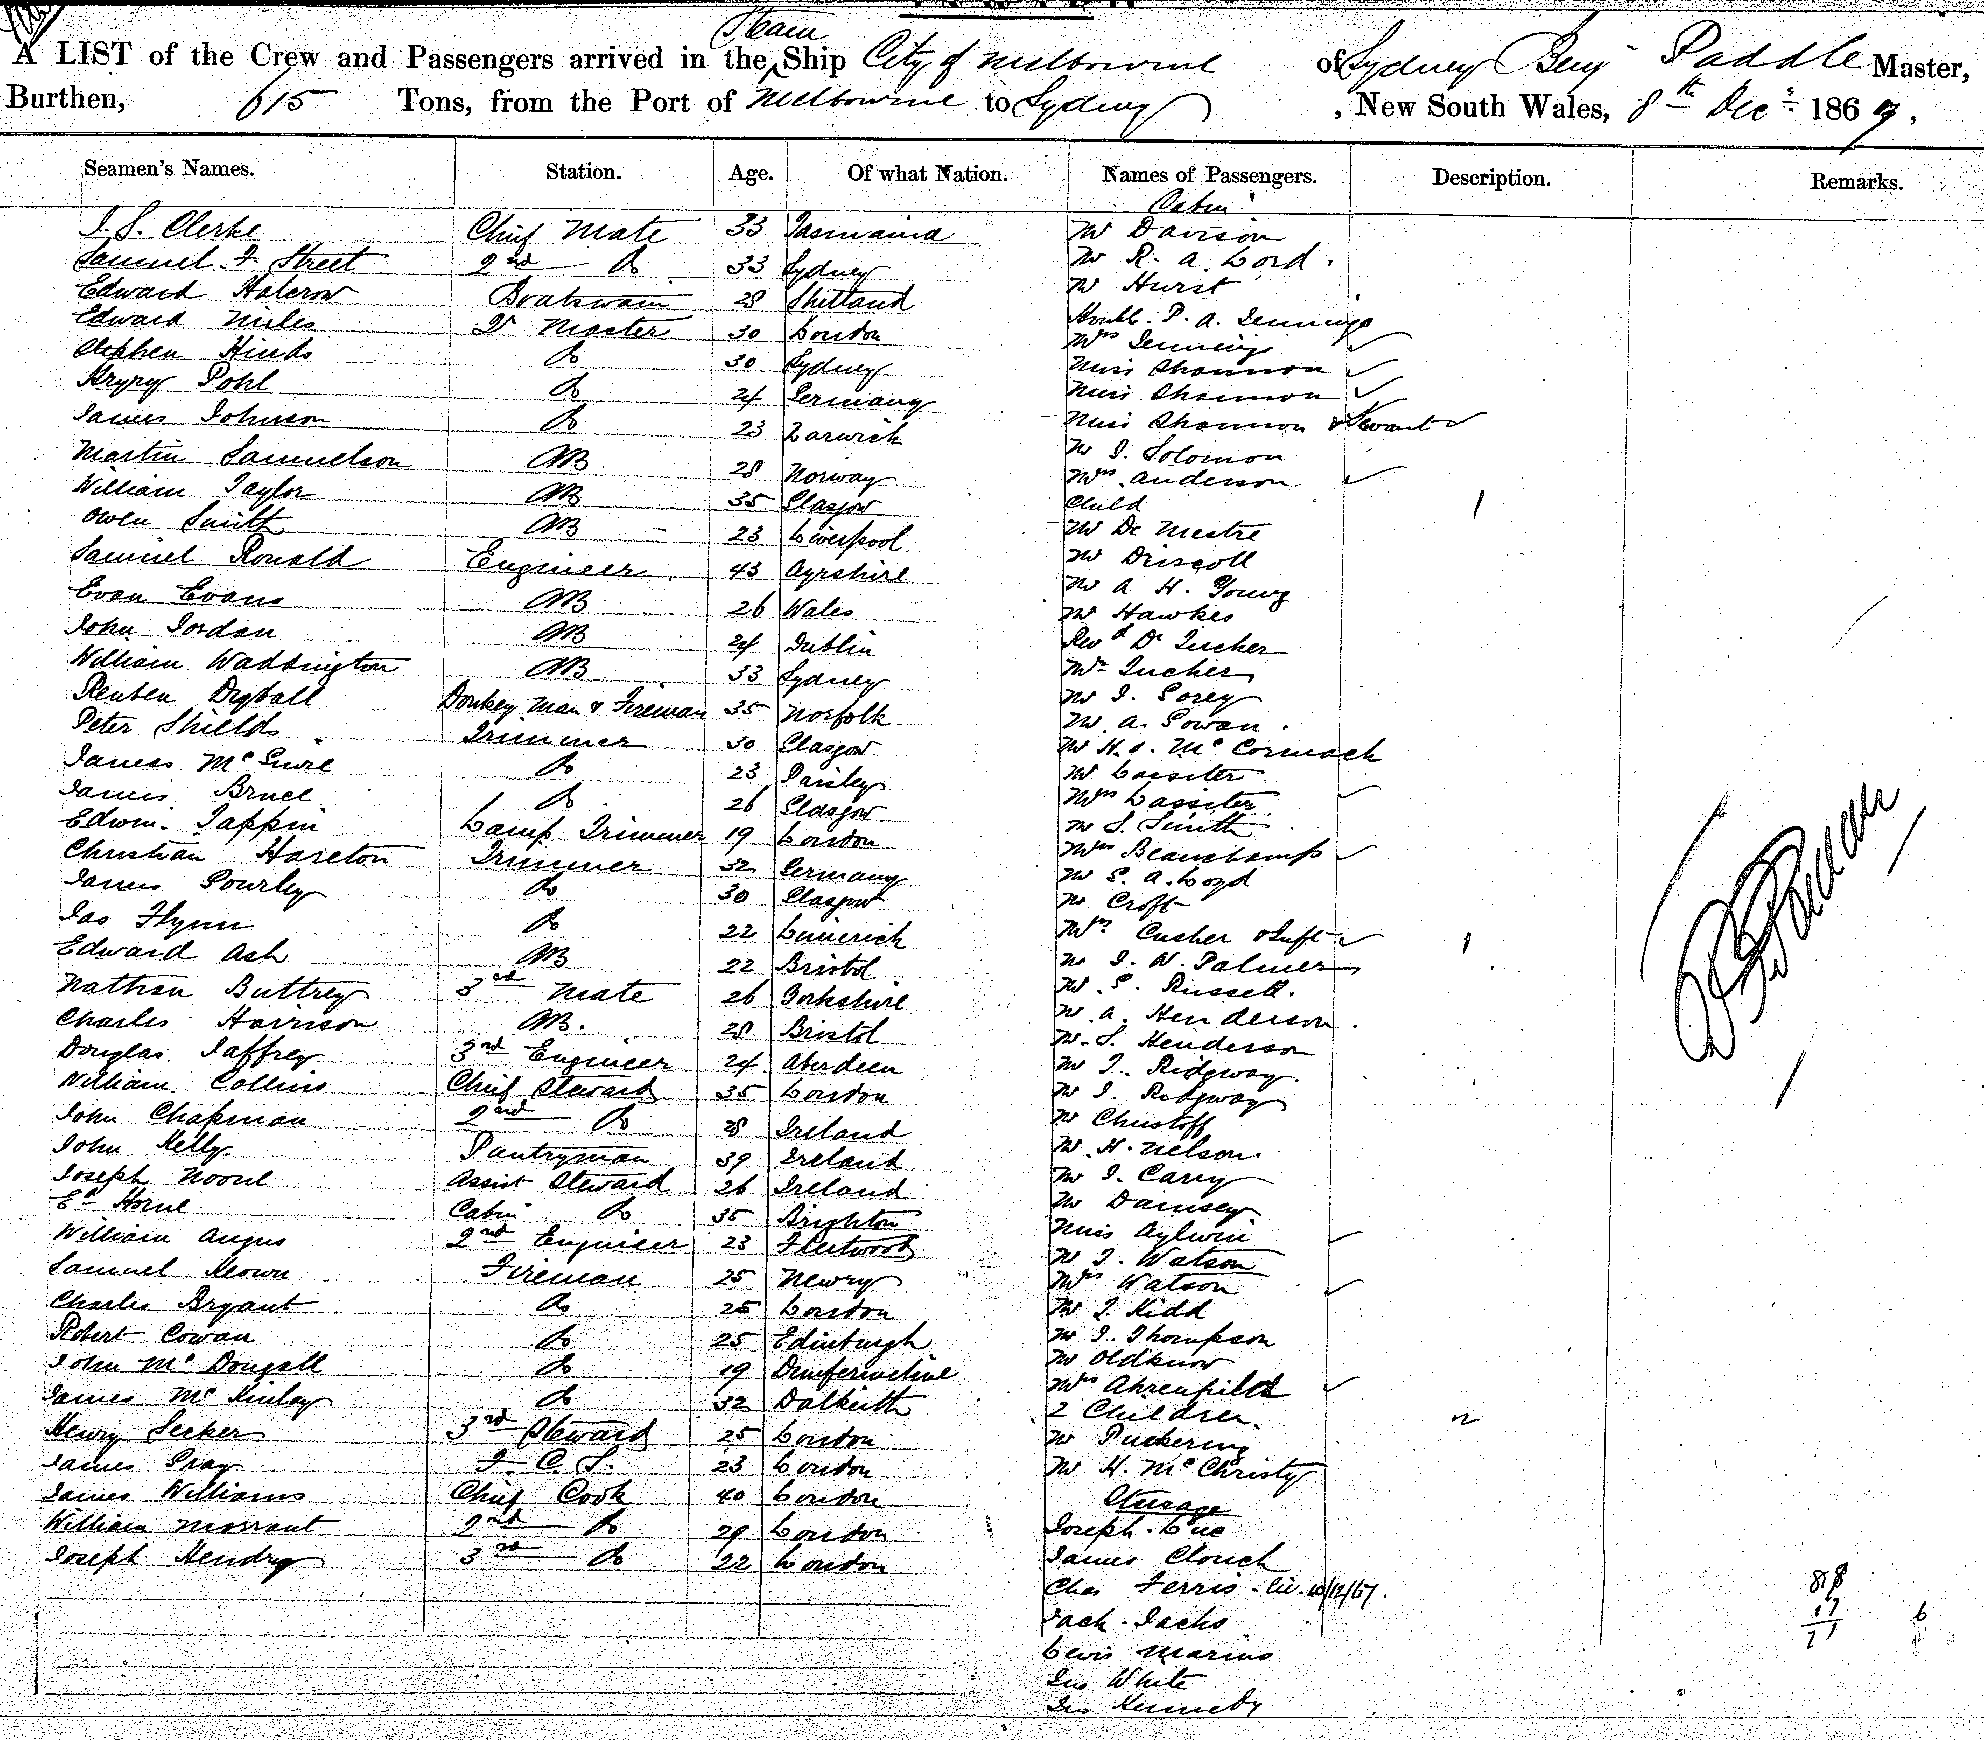 Steam
A LIST of the Crew and Passengers arrived in the Ship City of Melbourne of Sydney Benj Paddle Master,
Burthen, 615 Tons, from the Port of Melbourne to Sydney , New South Wales, 8th Decr 1869.
Seamen's Names. Station. Age. Of what Nation. Names of Passengers. Description. Remarks.
Cabin
J. S. Clerke Chief Mate 33 Tasmania Mr Davison
Samuel F. Street 2nd Do 33 Sydney Mr R. A. Lord.
Edward Halcrow Boatswain 28 Shetland Mr Hurst
Edward Miles Qr Master 30 London Honble. P. A. Jennings
Stephen Hinds Do 30 Sydney Mrs Jennings
Do 24 Germany Miss Shannon
Pohl Miss Shannon
James Johnson Do 23 Larwick Miss Shannon & Servant
Martin Samuelson AB 28 Norway Mr J. Solomon
William Taylor AB 35 Glasgow Mrs Anderson
Owen Smith AB 23 Liverpool Child 1
Samuel Ronald Engineer 43 Ayrshire Mr De Mestre
Evan Evans AB 26 Wales Mr Driscoll
John Jordan AB 24 Dublin Mr A H. Young
William Waddington AB 33 Sydney Mr Hawkes
Reuben Donkey Man & Fireman 35 Norfolk Revd Dr Tucker
Peter Shields Trimmer 30 Glasgow Mr Tucker
James Mc Do 23 Paisley Mr J. Gorey
James Bruce Do 26 Glasgow Mr A. Gowan.
Edwin Tappin Lamp Trimmer 19 London Mr H. J. Mc Cormack
Christian Hareton Trimmer 32 Germany Mr Lassiter
James Gourley Do 30 Glasgow Mrs Lassiter
Jas Flynn Do 22 Limerick Mr S. Smith
Edward Ash AB 22 Bristol Mrs Beauchamp
Nathan Buttrey 3rd Mate 26 Yorkshire Mr G. A. Loyd
Charles Harrison AB. 28 Bristol Mr Croft
Douglas Jaffrey 3rd Engineer 24 Aberdeen Mrs Cusher & Inft 1
William Collins Chief Steward 35 London Mr J. W. Palmer
John Chapman 2nd Do 28 Ireland Mr G. Russell.
John Kelly Pantryman 39 Ireland Mr A. Henderson
Joseph Noone Assist Steward 26 Ireland Mr S. Henderson
Ed Horne Cabin Do 35 Brighton Mr T. Ridgway.
William Angus 2nd Engineer 23 Fleetwood Mr J. Ridgway
Samuel Keown Fireman 25 Newry Mr Christoff
Charles Bryant Do 25 London Mr H. Nelson.
Robert Cowan Do 25 Edinburgh Mr J. Carey
John Mc Dougall Do 19 Dunfermline Mr Dainsey
James Mc Kinlay Do 32 Dalkeith Miss Aylwin
Henry Secker 3rd Steward 25 London Mr J. Watson
James Gray F. C. S. 23 London Mrs Watson
James Williams Chief Cook 40 London Mr J. Kidd
William Morrant 2nd Do 29 London Mr J. Thompson
Joseph Hendry 3rd Do 22 London Mr Oldknow
Mrs Ahrenfeldt
2 Children. 2
Mr Puckering
Mr H. Mc Christy
Steerage
Joseph Lue
James Clouch
Chas Ferris
Zach. Jacks
Lewis Marino
Jno White
Jno Kennedy